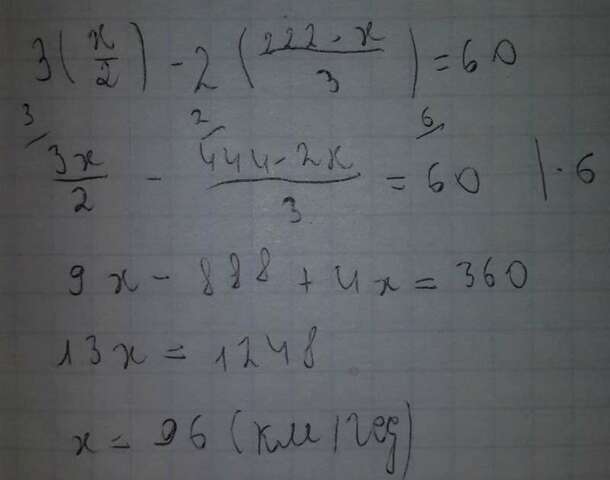 3(x/2) - 2(222-x/3) = 60
3/ 2/ 6/
3x/2 - 444-2x/3 = 60 | · 6
9x - 888 + 4x = 360
13x = 1248
x = 96 (км/год)